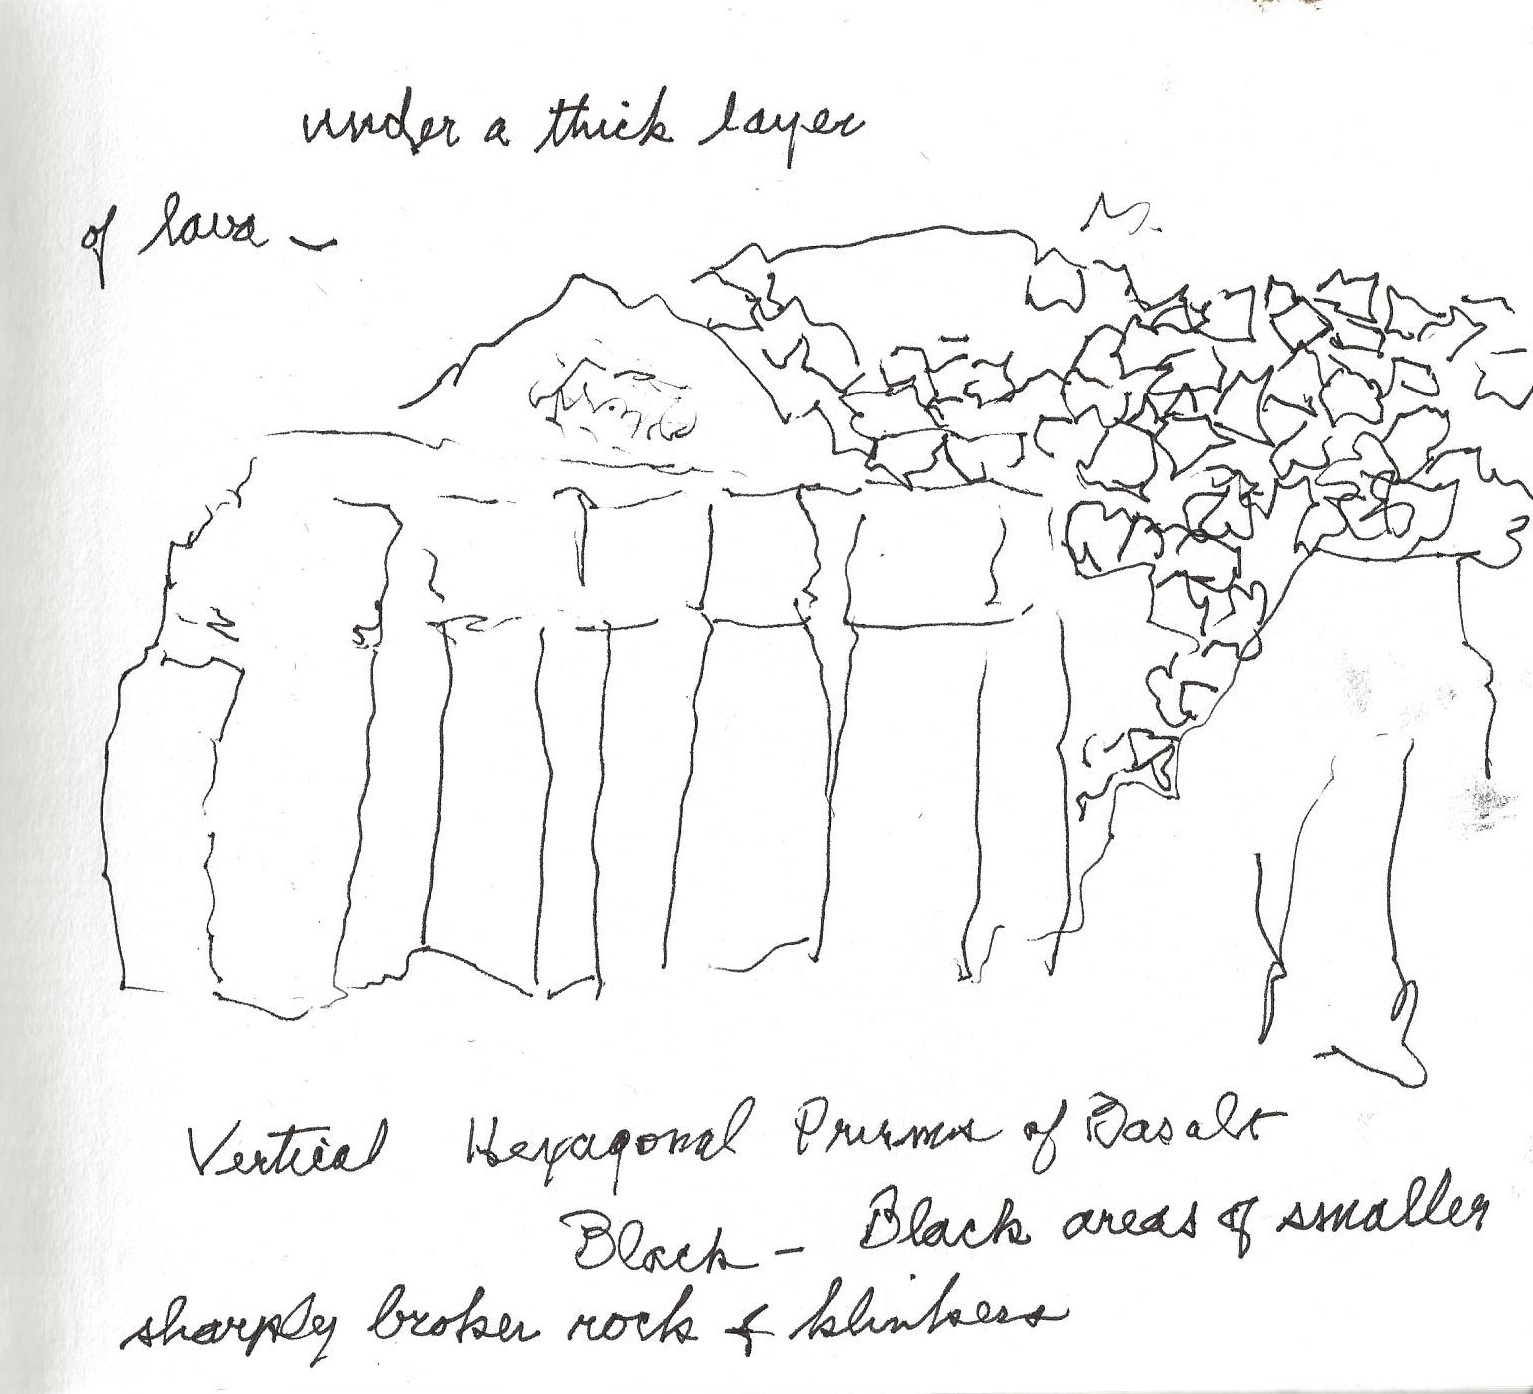 under a thick layer
of lava –
Vertical Hexagonal Prisms of Basalt
Black – Black areas of smaller
sharply broken rock & klinkers